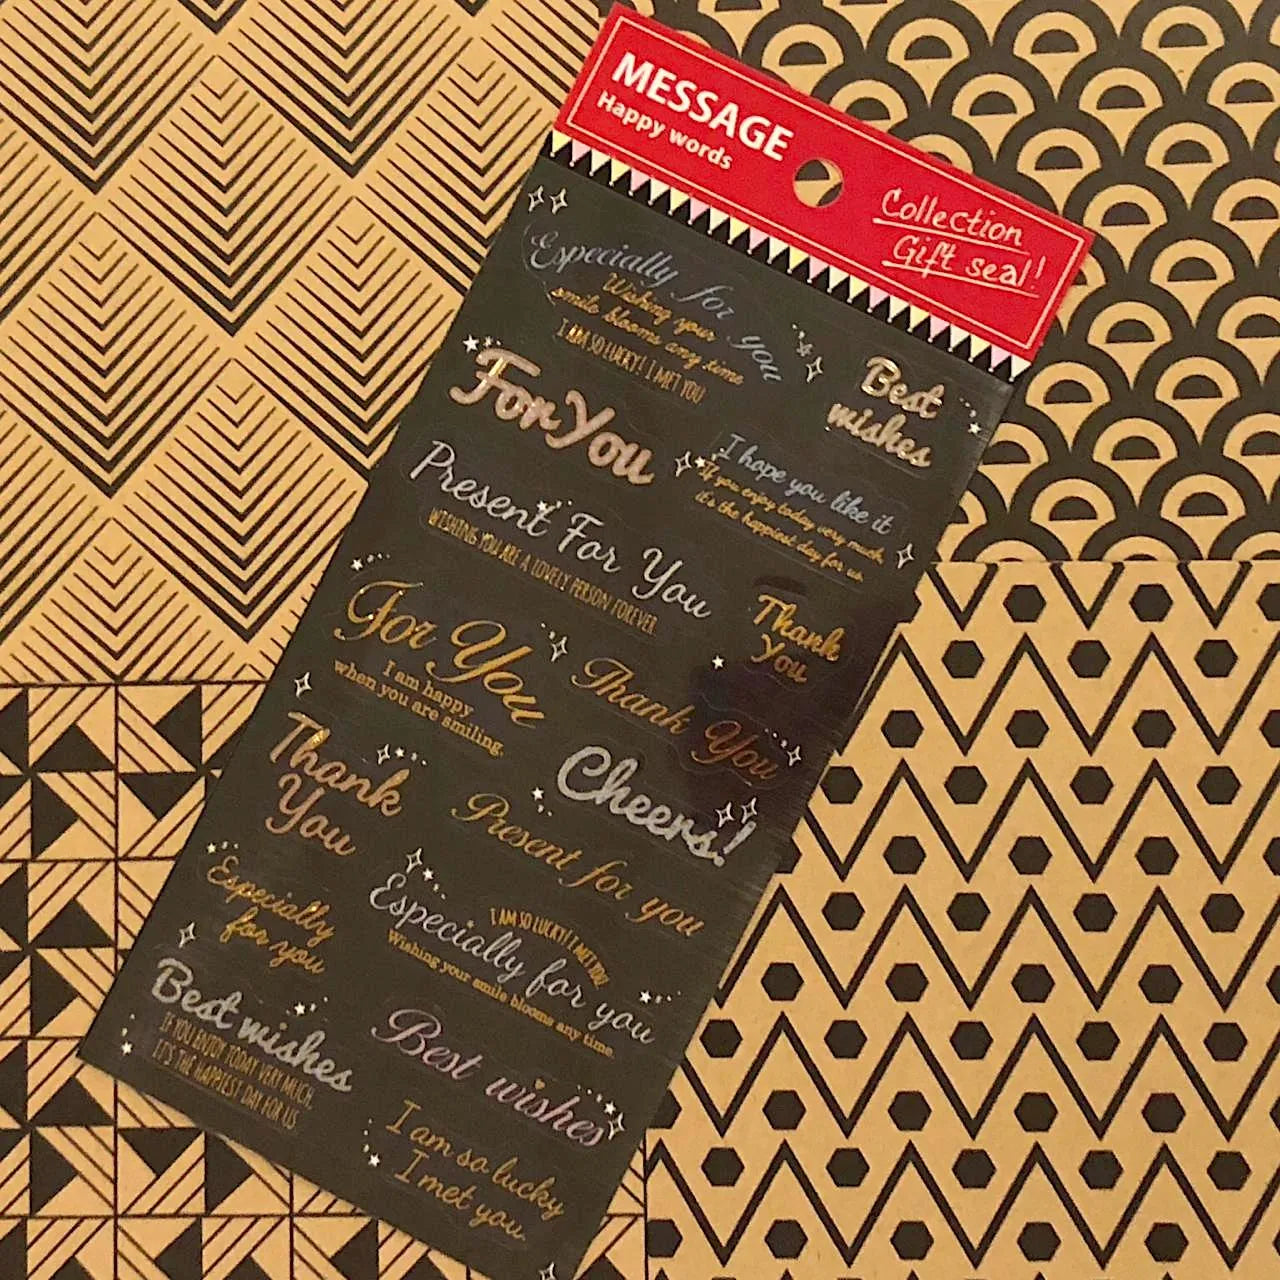 MESSAGE
Happy words
Collection
Gift seal!
Especially for you
Wishing your
smile blooms any time
I AM SO LUCKY! I MET YOU
Best
wishes
For You
I hope you like it
If you enjoy today very much,
it's the happiest day for us.
Present For You
WISHING YOU ARE A LOVELY PERSON FOREVER.
Thank
You
For You
I am happy
when you are smiling.
Thank You
Thank
You
Cheers!
Present for you
Especially
for you
I AM SO LUCKY! I MET YOU!
Especially for you
Wishing your smile blooms any time.
Best wishes
IF YOU ENJOY TODAY VERY MUCH,
IT'S THE HAPPIEST DAY FOR US
Best wishes
I am so lucky
I met you.